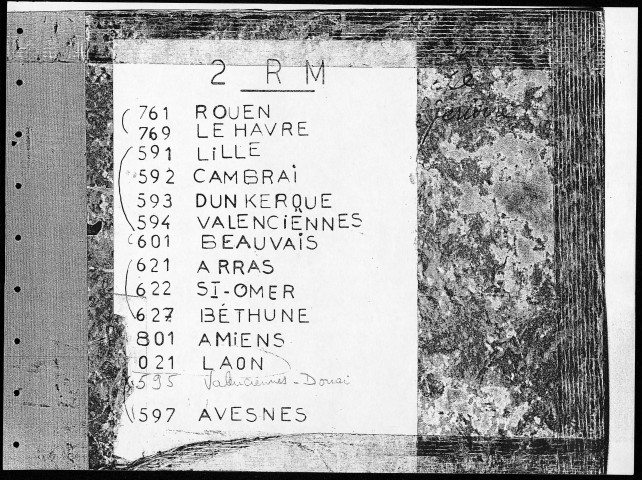 2 RM
761 ROUEN
769 LE HAVRE
591 LiLLE
592 CAMBRAi
593 DUNKERQUE
594 VALENCiENNES
601 BEAUVAiS
621 ARRAS
622 ST-OMER
627 BÉTHUNE
801 AMiENS
021 LAON
595 Valenciennes - Douai
597 AVESNES